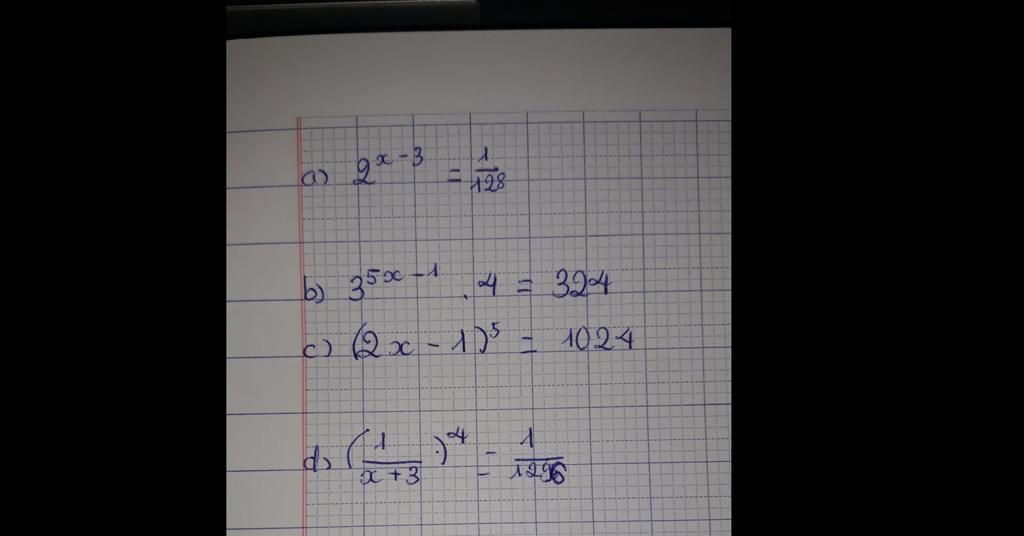 a) 2^(x-3) = 1/128
b) 3^(5x-1) . 4 = 324
c) (2x - 1)^5 = 1024
d) (1/(x+3))^4 = 1/1296